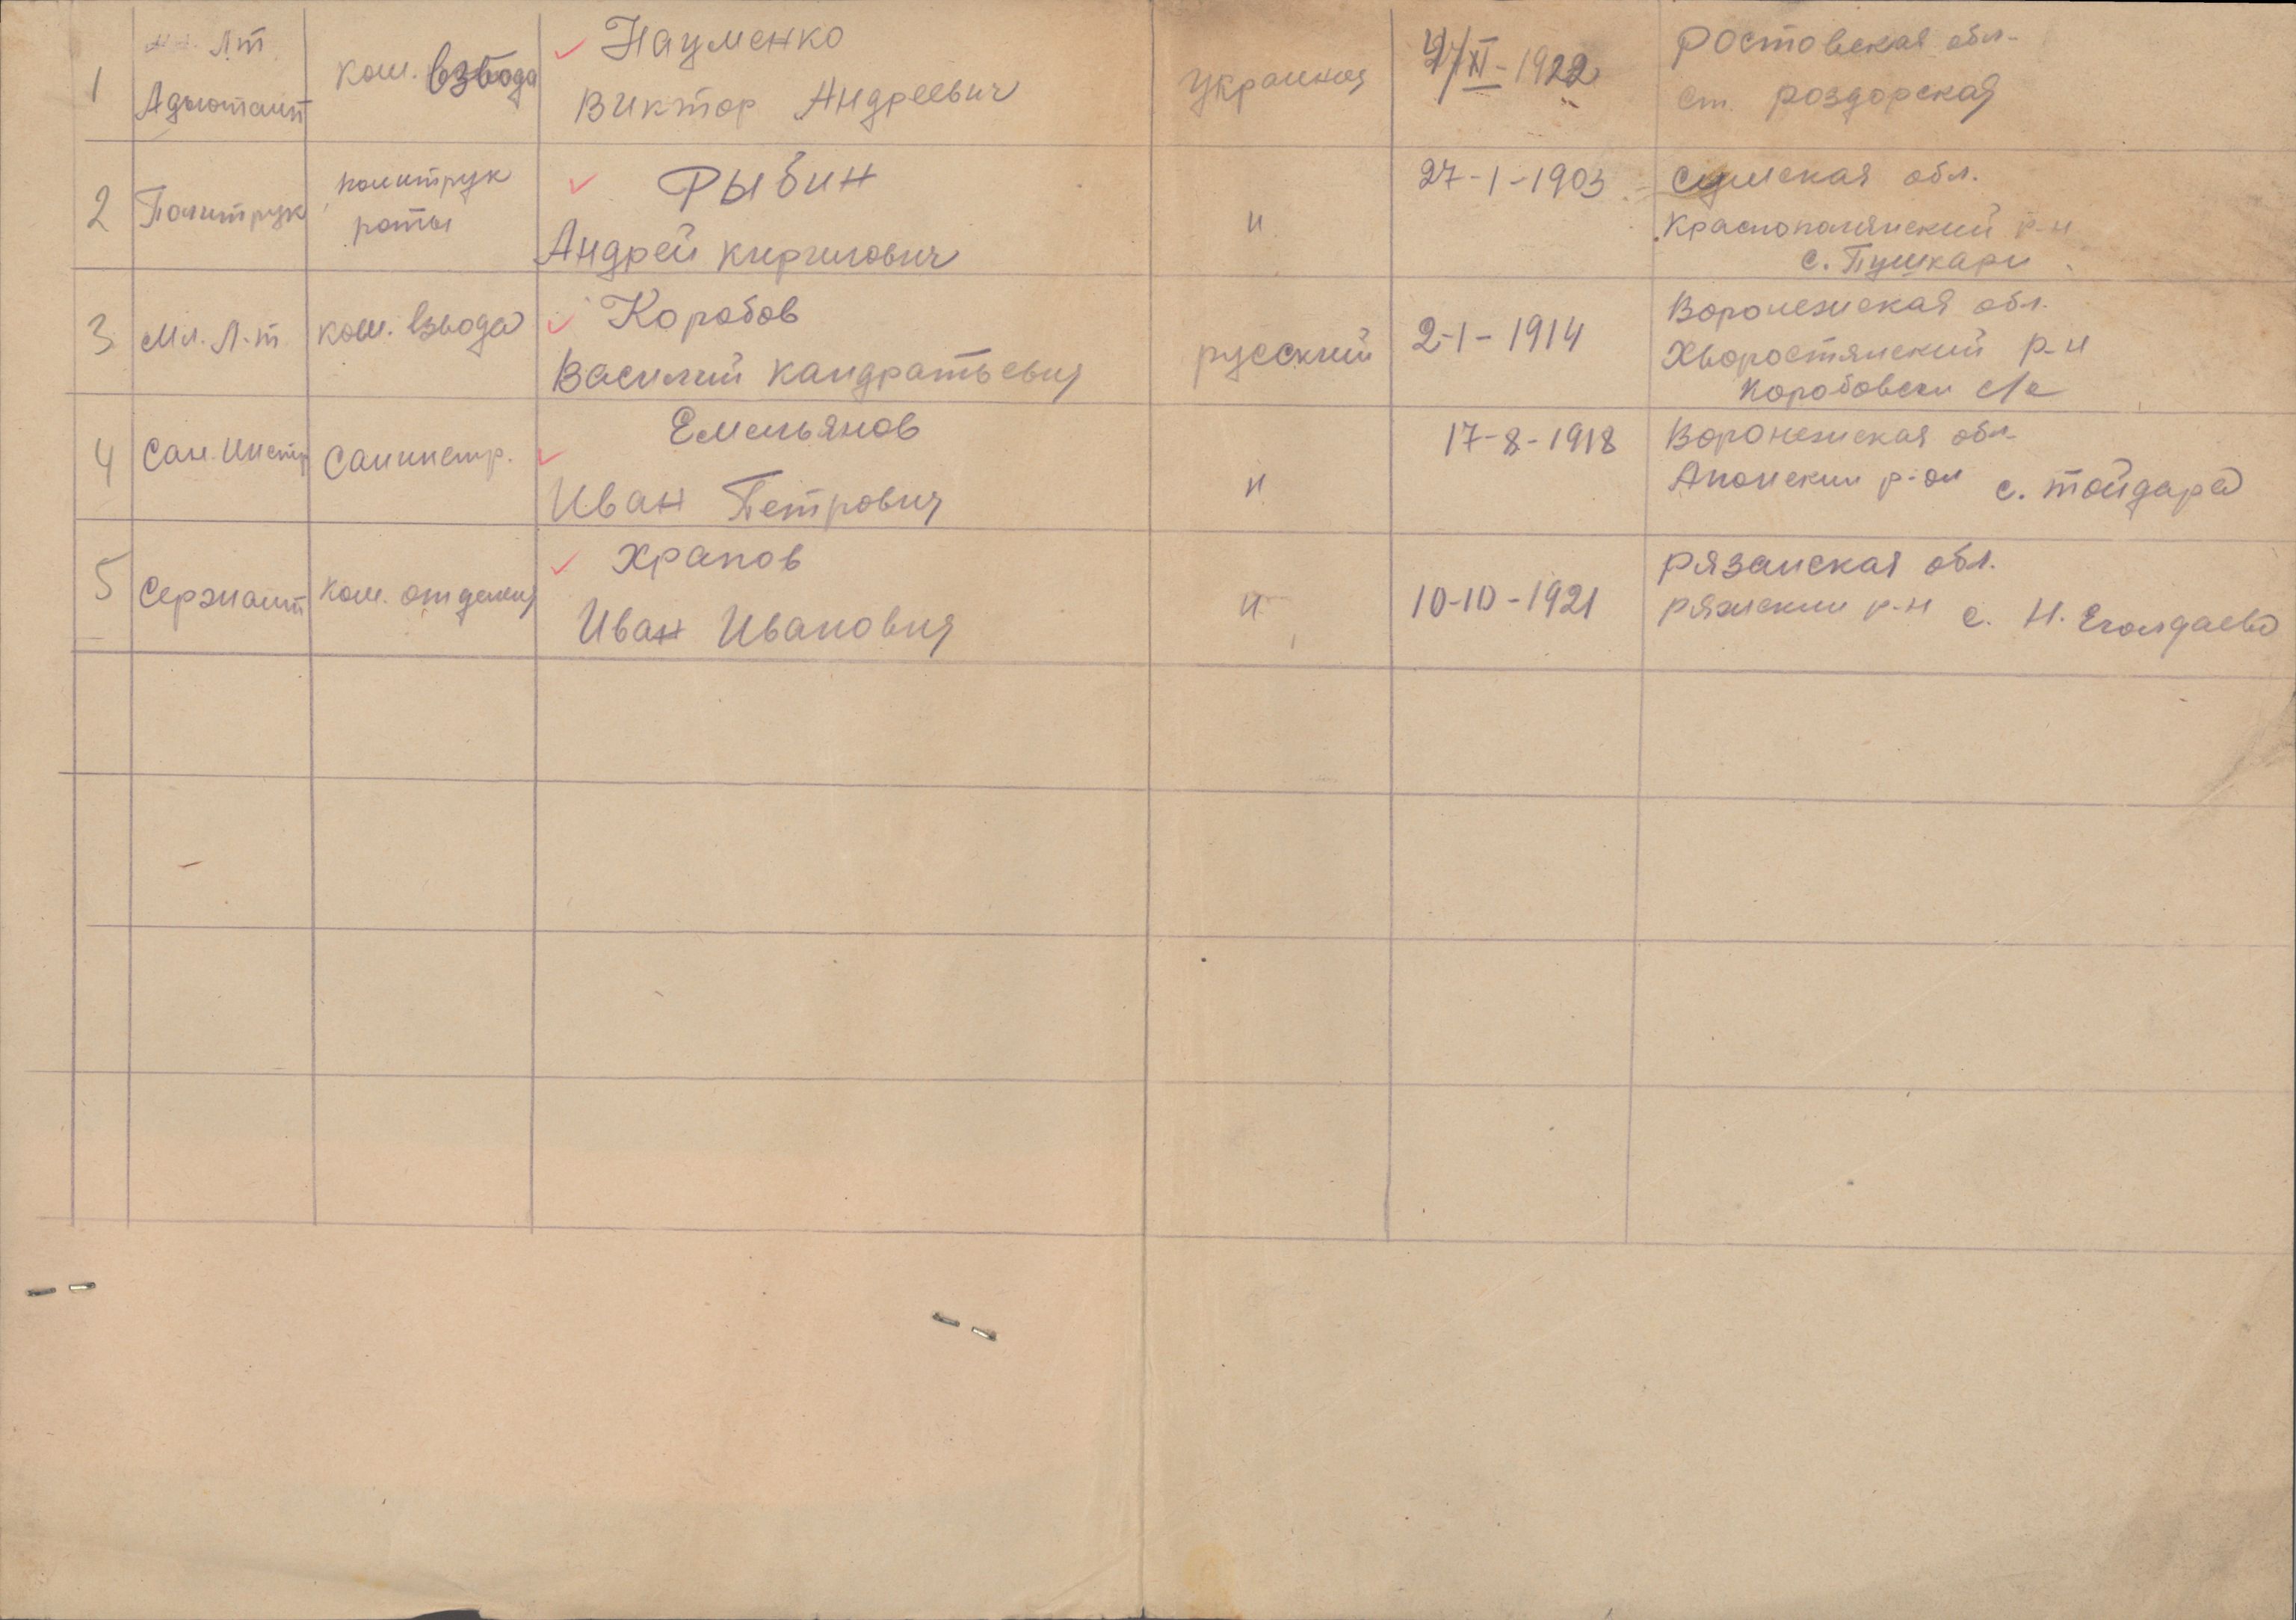 1
Лт
Адютант
ком. взвода
Науменко
Виктор Андреевич
украинец
XI-1922
Ростовская обл.
ст. роздорская
2
Политрук
политрук
роты
Рыбин
Андрей Кирилович
"
27-1-1903
Сумская обл.
Краснополянский р-н
с. Пушкари
3
Мл. Л-т
ком. взвода
Коробов
Василий Кандратьевич
русский
2-1-1914
Воронежская обл.
Хворостянский р-н
Коробовски с/с
4
Сан. Инстр
Санинстр.
Емельянов
Иван Петрович
"
17-8-1918
Воронежская обл.
р-он с. Тойдара
5
Сержант
ком. отделен
Храпов
Иван Иванович
"
10-10-1921
Рязанская обл.
Ряжский р-н с. Н. Еголдаево